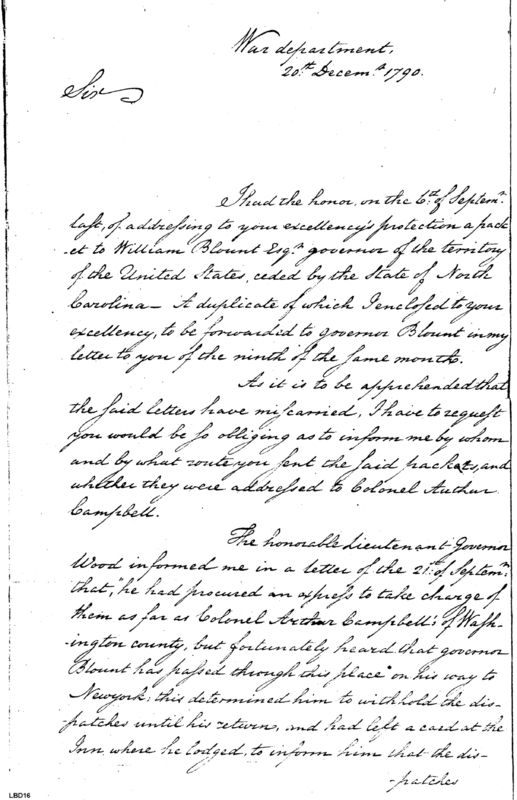 War department,
20th Decemr 1790.
Sir
I had the honor, on the 6th of Septemr
last, of addressing to your excellency's protection a pack
-et to William Blount Esqr governor of the territory
of the United States, ceded by the State of North
Carolina— A duplicate of which I enclosed to your
excellency, to be forwarded to governor Blount in my
letter to you of the ninth of the same month.
As it is to be apprehended that
the said letters have miscarried, I have to request
you would be so obliging as to inform me by whom
and by what route you sent the said packets, and
whether they were addressed to Colonel Arthur
Campbell.
The honorable Lieutenant Governor
Wood informed me in a letter of the 21st of Septemr
that, "he had procured an express to take charge of
them as far as Colonel Arthur Campbell's of Wash
-ington county, but fortunately heard that governor
Blount has passed through this place" on his way to
Newyork; this determined him to withhold the dis-
patches until his return, and had left a card at the
Inn where he lodged, to inform him that the dis-
-patches
LBD16